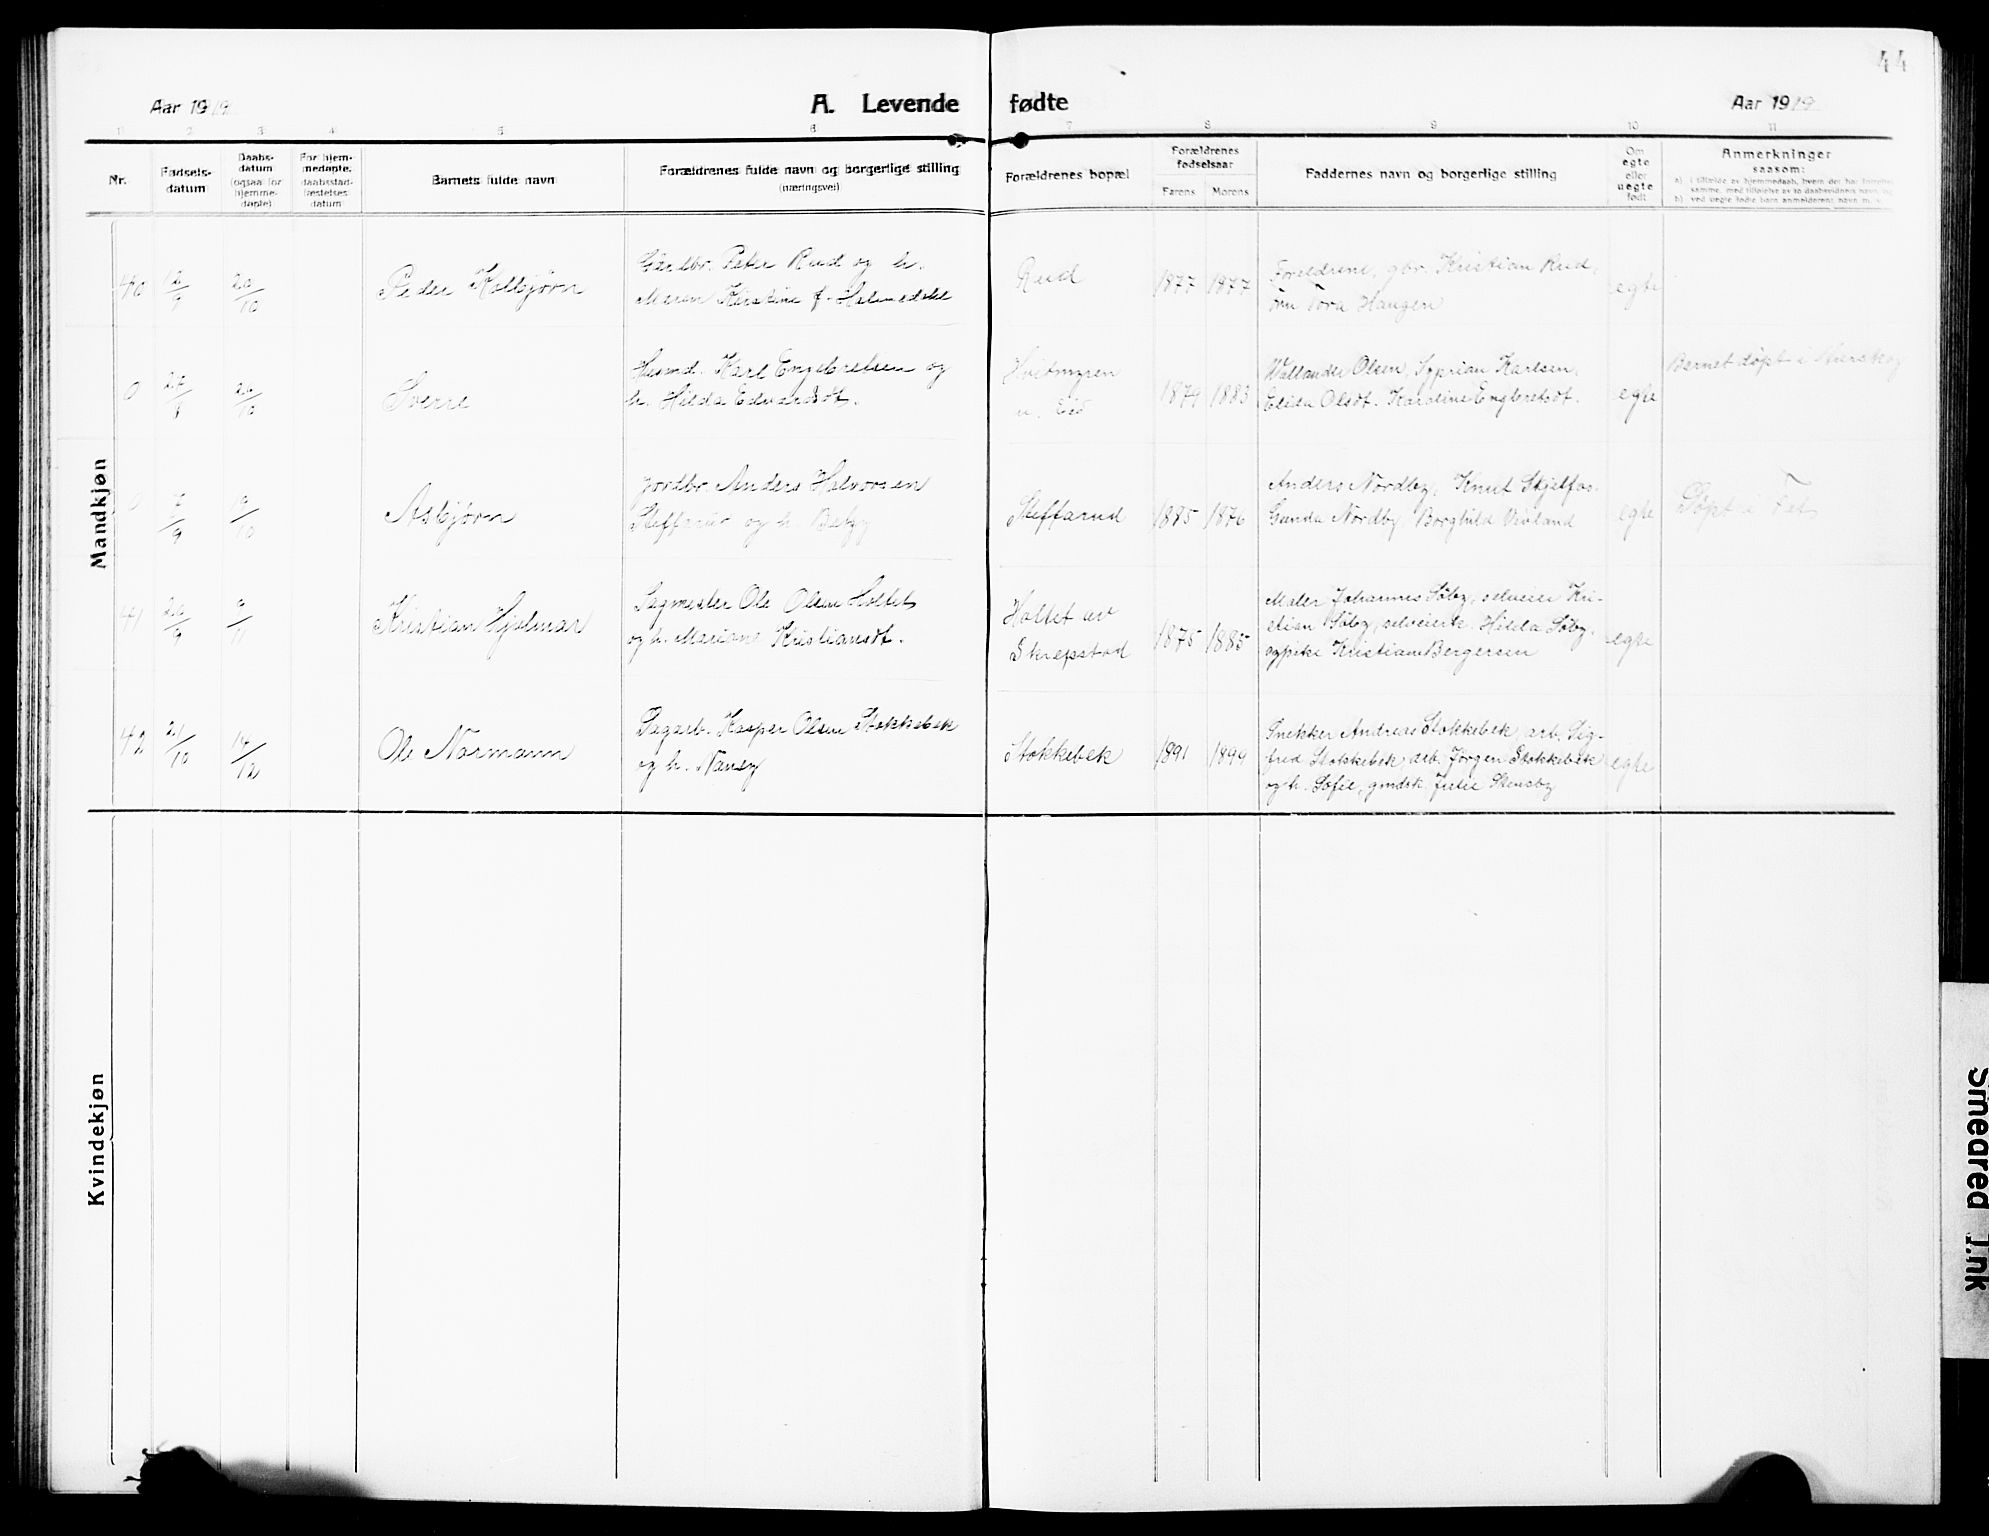 44
Aar 1919
A. Levende fødte
Aar 1919
1 2 3 4 5 6 7 8 9 10 11
Nr.
Fødsels-
datum
Daabs-
datum
(ogsaa for
hjemme-
døpte)
For hjem-
medøpte,
daabsstad-
fæstelses
datum
Barnets fulde navn
Forældrenes fulde navn og borgerlige stilling
(næringsvei)
Forældrenes bopæl
Forældrenes
fødselsaar
Farens
Morens
Faddernes navn og borgerlige stilling
Om
egte
eller
uegte
født
Anmerkninger
saasom:
a) i tilfælde av hjemmedaab, hvem der har forrettet
samme, med tilføielse av to daabsvidners navn, og
b) ved uegte fødte barn anmelderens navn m. v.
Mandkjøn
40
12/9
20/10
Peder Kolbjørn
Gårdbr. Peter Rud og h.
Maren Kirstine f. Halmedske
Rud
1877 1877
Foreldrene, gbr. Kristian Rud,
frn Tora Haugen
egte
0
/8
/10
Sverre
Husmd. Karl Engebretsen og
h. Hilda Edvardsdt.
Hvitmyren
n. Eid
1879 1883
Wallander Olsen, Syprian Karlsen,
Elida Olsdt. Karoline Engbretsdt.
egte
Barnet døpt i Aurskog
0
7/9
19/10
Asbjørn
Jordbr. Anders Halvorsen
Steffarud og h. Betzy
Steffarud
1885 1876
Anders Nordby, Knut Skjelfos
Gunda Nordby, Borghild Vevland
egte
Døpt i Fet
41
20/9
9/11
Kristian Hjalmar
Sagmester Ole Olsen Holtet
og h. Mariane Kristiansdt.
Holtet av
Skrepstad
1875 1885
Maler Johannes Søby, selveier Kri-
stian Søby, selveierk. Hilda Søby,
og pike Kristiane Bergersen
egte
42
21/10
14/12
Ole Normann
Sagarb. Kasper Olsen Stokkebek
og h. Nancy
Stokkebek
1891 1899
Snekker Andreas Stokkebek, arb. Sig-
frid Stokkebek, arb. Jørgen Stokkebek
og h. Sofie, gmdsk. Julie Stensby
egte
Kvindekjøn
Smeared Ink